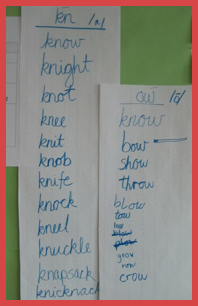 kn /n/
know
knight
knot
knee
knit
knob
knife
knock
kneel
knuckle
knapsack
knicknack
ow /ō/
know
bow
show
throw
blow
tow
low
grow
row
crow